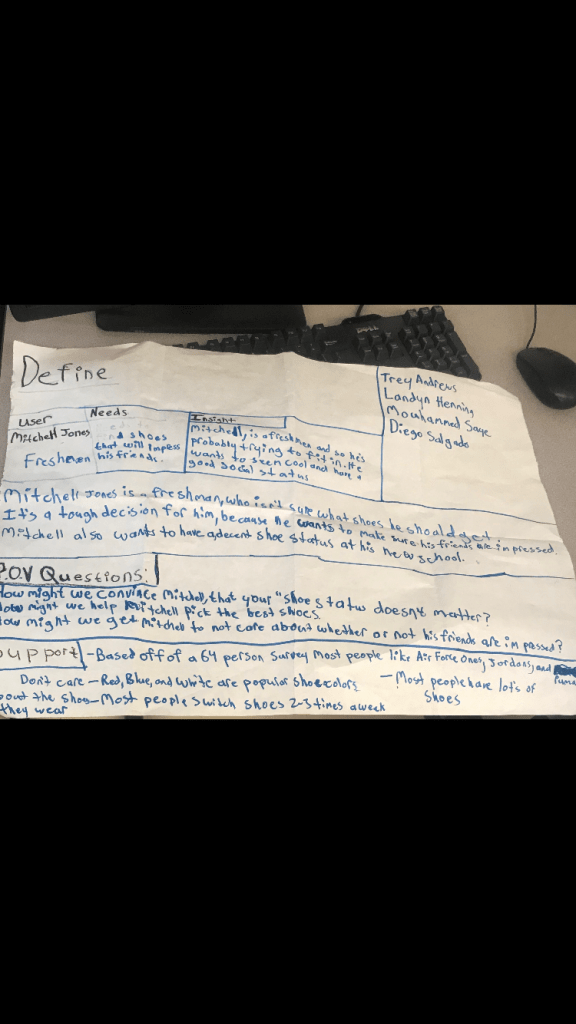 Define
Trey Andrews
Landyn Henning
Mouhammed Saye
Diego Salgado
User
Mitchell Jones
Freshmen
Needs
shoes
that will impress
his friends.
Insight
Mitchell, is a freshmen and so he's
probably trying to fit in. He
wants to seen cool and have a
good social status
Mitchell Jones is a freshman, who isn't sure what shoes he should get.
It's a tough decision for him, because he wants to make sure his friends are inpressed
Mitchell also wants to have a decent shoe status at his new school.
P.O.V Questions:
How might we convince Mitchell, that your "shoe status doesn't matter?
How might we help Mitchell pick the best shoes
How might we get Mitchell to not care about whether or not his friends are impassed?
Support
-Based off of a 64 person survey most people like Air Force Ones, Jordans, and
Puma
Don't care - Red, Blue, and white are popular shoe colors
- Most people have lots of
shoes
about the shoe - Most people switch shoes 2-3 times a week
they wear
DELL